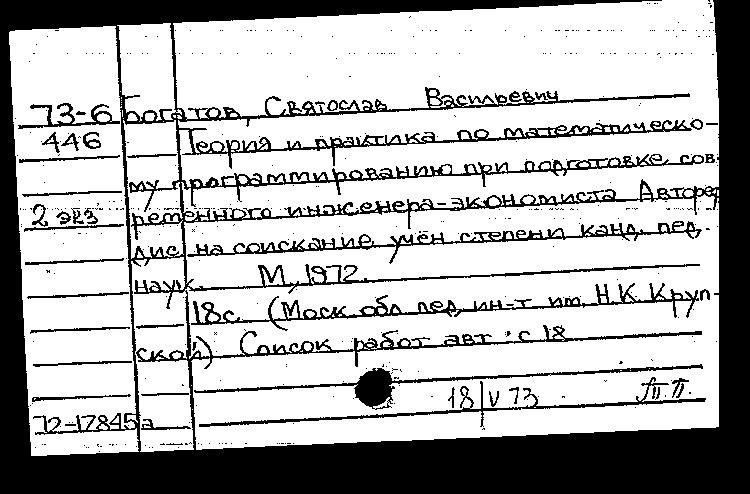 73-6 Богатов, Святослав Васильевич
446 Теория и практика по математическо-
му программированию при подготовке сов-
2 экз ременного инженера-экономиста Автореф
дис. на соискание учён степени канд. пед.
наук. М., 1972.
18с. (Моск обл пед ин-т им. Н.К. Круп-
ской) Список работ авт : с 18
18/V 73
72-17845а